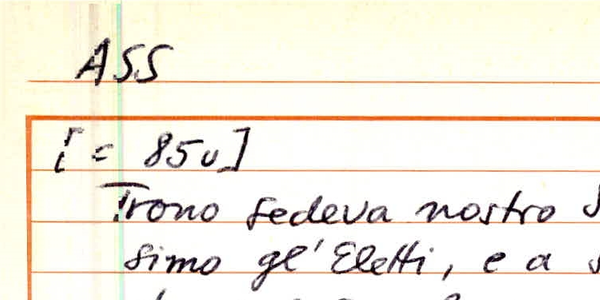 ASS
[= 85v]
Trono sedeva nostro
simo gl' Eletti, e a